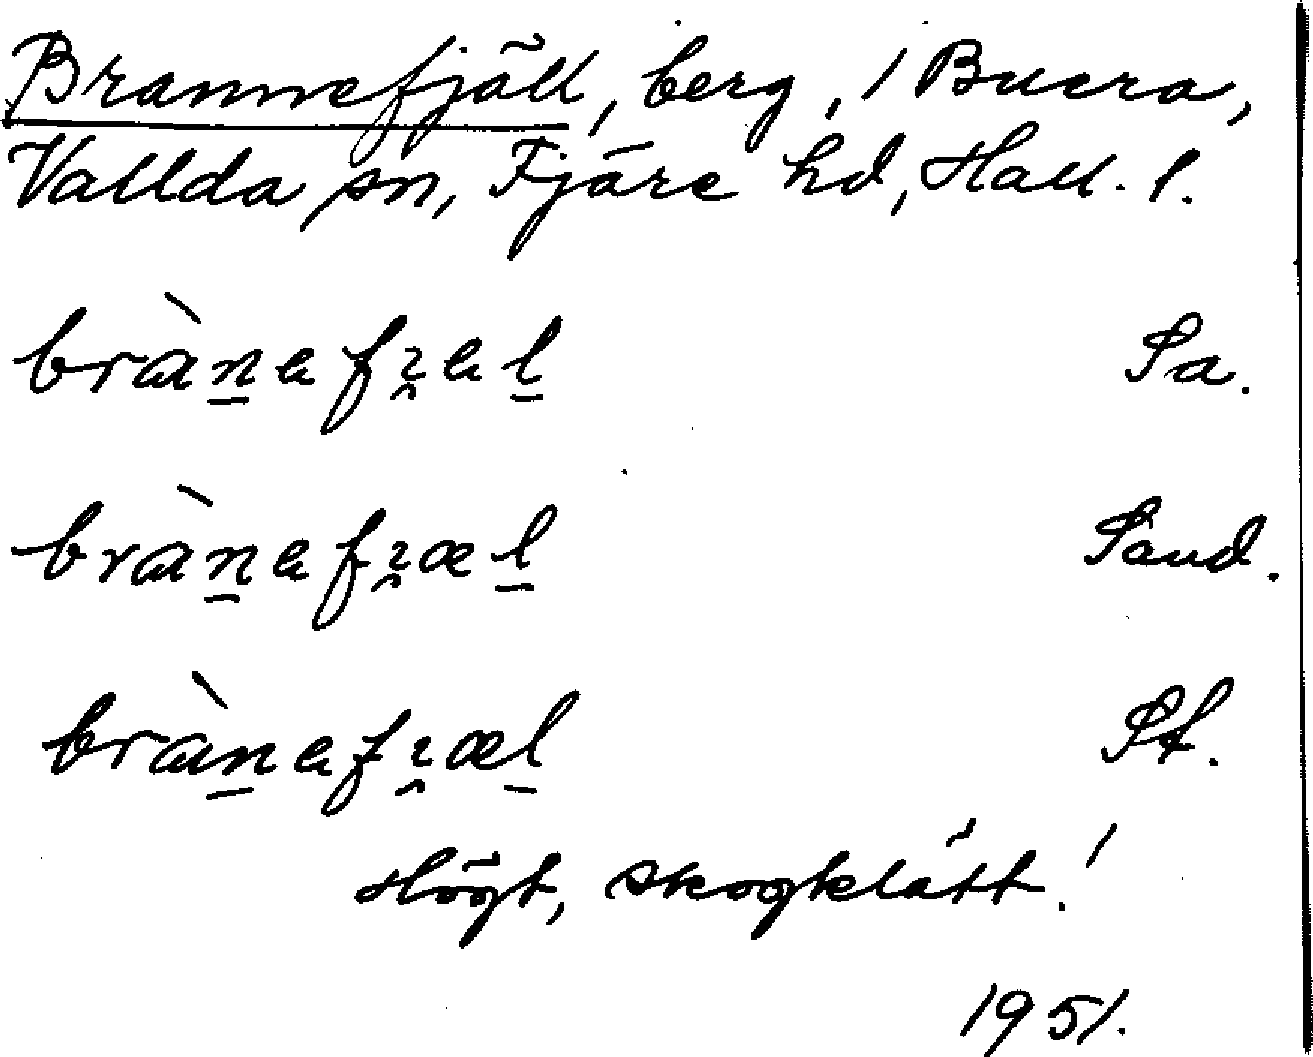 Brannefjäll, berg, 1 Buera,
Vallda sn, Fjäre hd, Hall. l.
brànafɪ̯al Sa.
brànafɪ̯æl Sand.
brànafɪ̯æl St.
Högt, skogklätt!
1951.